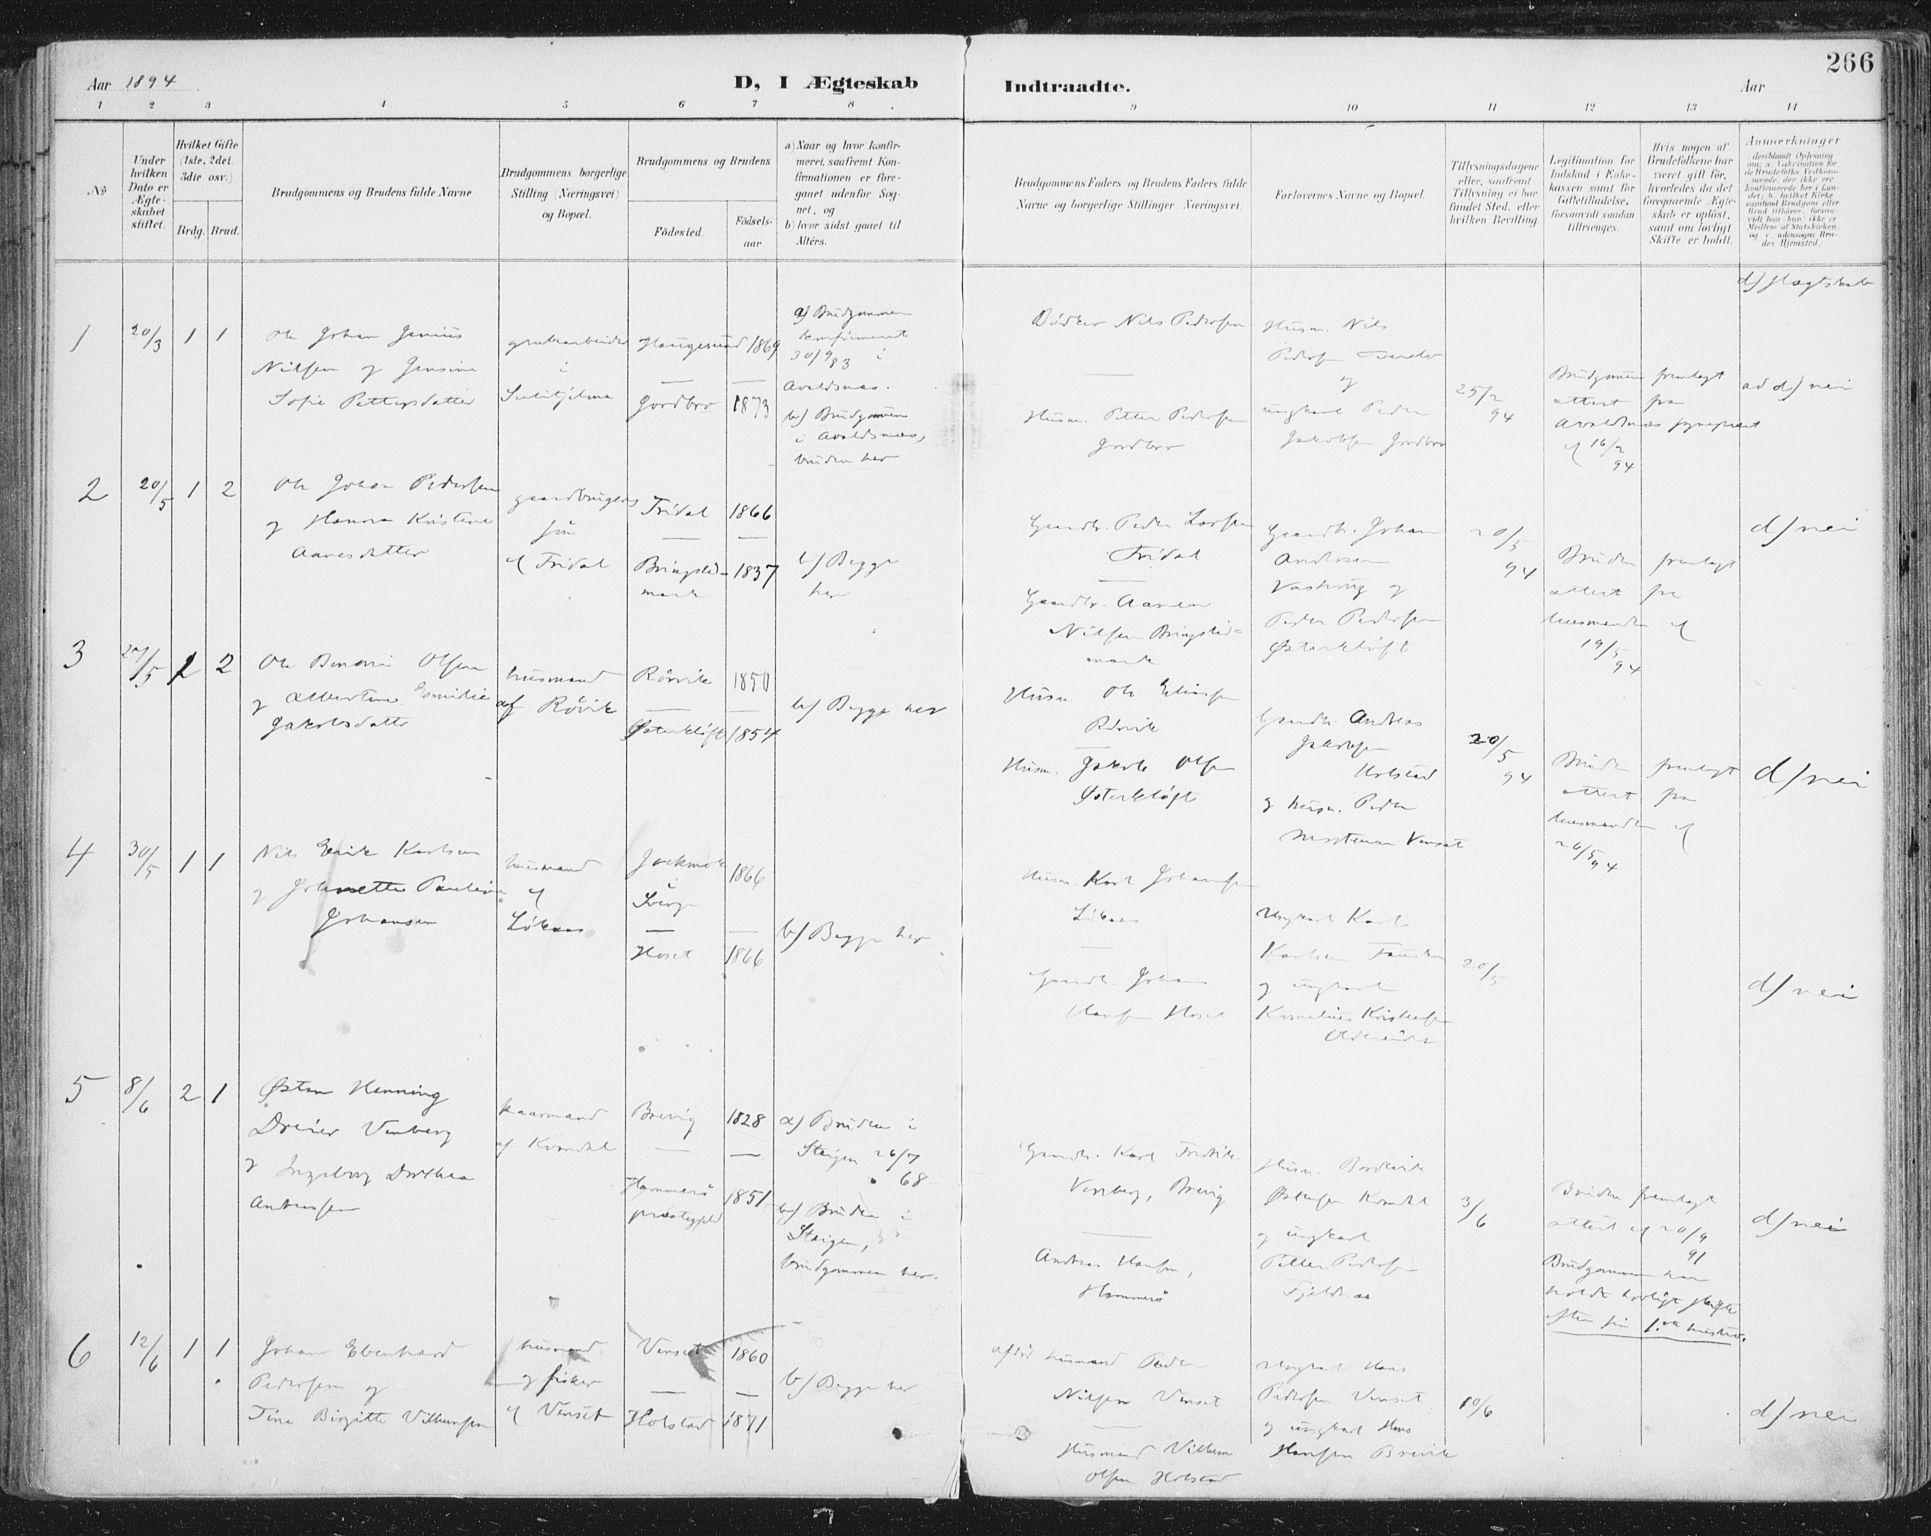 266
Aar 1894
D, I Ægteskab
Indtraadte.
Aar
1 2 3 4 5 6 7 8
9 10 11 12 13 14
No
Under hvilken Dato er Ægteskabet stiftet.
Hvilket Gifte (1ste, 2det, 3die osv.)
Brdg. Brud.
Brudgommens og Brudens fulde Navne
Brudgommens borgerlige Stilling (Næringsvei) og Bopæl.
Brudgommens og Brudens
Födested.
Födsels-aar.
a) Naar og hvor konfirmeret, saafremt Konfirmationen er foregaaet udenfor Sognet, og
b) hvor sidst gaaet til Alters.
Brudgommens Faders og Brudens Faders fulde Navne og borgerlige Stillinger (Næringsvei).
Forlovernes Navne og Bopæl.
Tillysningsdagene eller, saafremt Tillysning ei har fundet Sted, efter hvilken Bevilling
Legitimation for Indskud i Enkekassen samt for Giftetilladelse, forsaavidt saadan tiltrænges.
Hvis nogen af Brudefolkene har været gift før, hvorledes da det foregaaende Ægteskab er opløst, samt om lovligt Skifte er holdt.
Anmerkninger
d) Slægtskab
1 20/3 1 1
Ole Johan Jenius
Nilsen og Jensine
Sofie Pettersdatter
grubearbeider
i
Sulitjelma
Haugesund 1869
Gjordbro 1873
a) Brudgommen
konfirmeret
30/9 83 i
Avaldsnæs.
b) Brudgommen
i Avaldsnæs,
bruden her
Bödker Nils Pedersen
Husm. Petter Pedersen
Gjordbro
Husm. Nils
Pedersen
og
ungkarl Peder
Jakobsen Gjordbro
25/2 94
Brudgommen fremlagt
attest fra
Avaldsnæs
af 16/2 94
ad d) nei
2 20/5 1 2
Ole Johan Pedersen
og Hanna Kristine
Aanesdatter
gaardbrugers
søn
af Fridal
Fridal 1866
Bringslid-
mark 1837
b) Begge
her
Gaardb. Peder Larsen
Fridal
Gaardb. Aanen
Nilsen Bringslid-
mark
Gaardb. Johan
Andersen
og
Peder Pedersen
Østerkløft
20/5 94
Bruden fremlagt
attest fra
lensmanden af
19/5 94
d) nei
3 27/5 1 2
Ole Olsen
og Albertine Emilie
Jakobsdatter
husmand
af Rövik
Rörvik 1850
Østerkløft 1854
b) Begge her
Husm. Ole
Rövik
Husm. Jakob Olsen
Østerkløft
Gaardb. Andreas
Jakobsen
Holstad
og husm. Peder
Mortensen Venset
20/5 94
Bruden fremlagt
attest fra
lensmanden af
26/5 94
d) nei
4 30/5 1 1
Nils Erik Karlsen
og Johanette Pauline
Johansen
husmand
af
Løkaas
Jockmok
i
Sverge 1866
Hoset 1866
b) Begge her
Husm. Karl Johansen
Løkaas
Gaardb. Johan
Hansen Hoset
Ungkarl Karl
Karlsen
og ungkarl
Kornelius Kristensen
20/5
d) nei
5 8/6 2 1
Østen Henning
Dreier Venberg
og Ingeborg Dorthea
Andreassen
kaarmand
af Kvandal
Brevig 1828
Hammerö
præstegjeld 1851
a) Bruden i
Steigen 26/7
68
b) Bruden i
Steigen,
brudgommen her.
Gaardb. Karl Fredrik
Venberg, Brevig
Andreas Hansen,
Hammerö
Husm.
Østensen Kvandal
og ungkarl
Petter Pedersen
Fjeldnæs
3/6
Bruden fremlagt
attest af 20/9
91
Brudgommen har
holdt lovligt skifte
efter sin 1.ste hustru.
d) nei
6 12/6 1 1
Johan Ebenhard
Pedersen og
Tine Birgitte Vilhumsen
husmand
og fisker
af Venset
Venset 1860
Holstad 1871
b) Begge her
afdöd husmand Peder
Nilsen Venset
Husmand Villum
Olsen Holstad
Ungkarl Hans
Pedersen Venset
og ungkarl Hans
Hansen Brevik
10/6
d) nei